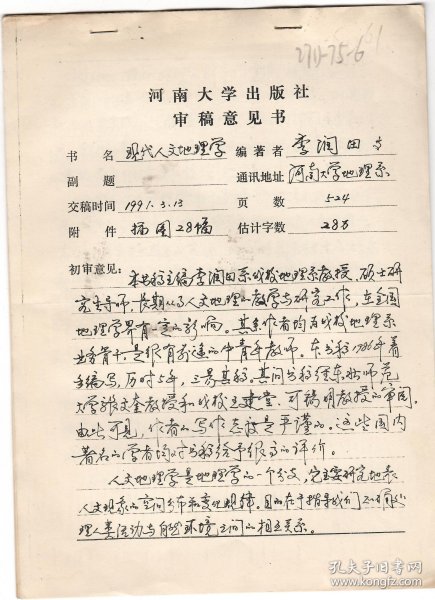 河南大学出版社
审稿意见书
书名 现代人文地理学 编著者 李润田等
副题 通讯地址 河南大学地理系
交稿时间 1991.3.13 页数 524
附件 插图28幅 估计字数 28万
初审意见：本书稿主编李润田系我校地理系教授、硕士研
究生导师，长期从事人文地理的教学与研究工作，在全国
地理学界有一定的影响。其余作者均为我校地理系
业务骨干，是很有前途的中青年教师。本书稿1986年着
手编写，历时5年，三易其稿。其间书稿经东北师范
大学张文奎教授和我校王建堂、 明教授的审阅。
由此可见，作者的写作态度是严谨的。这些国内
著名的学者均对书稿给予很高的评价。
人文地理学是地理学的一个分支，它主要研究地表
人文现象的空间分布和变化规律。目的在于指导我们正确处
理人类活动与自然环境之间的相互关系。
孔夫子旧书网
www.kongfz.com